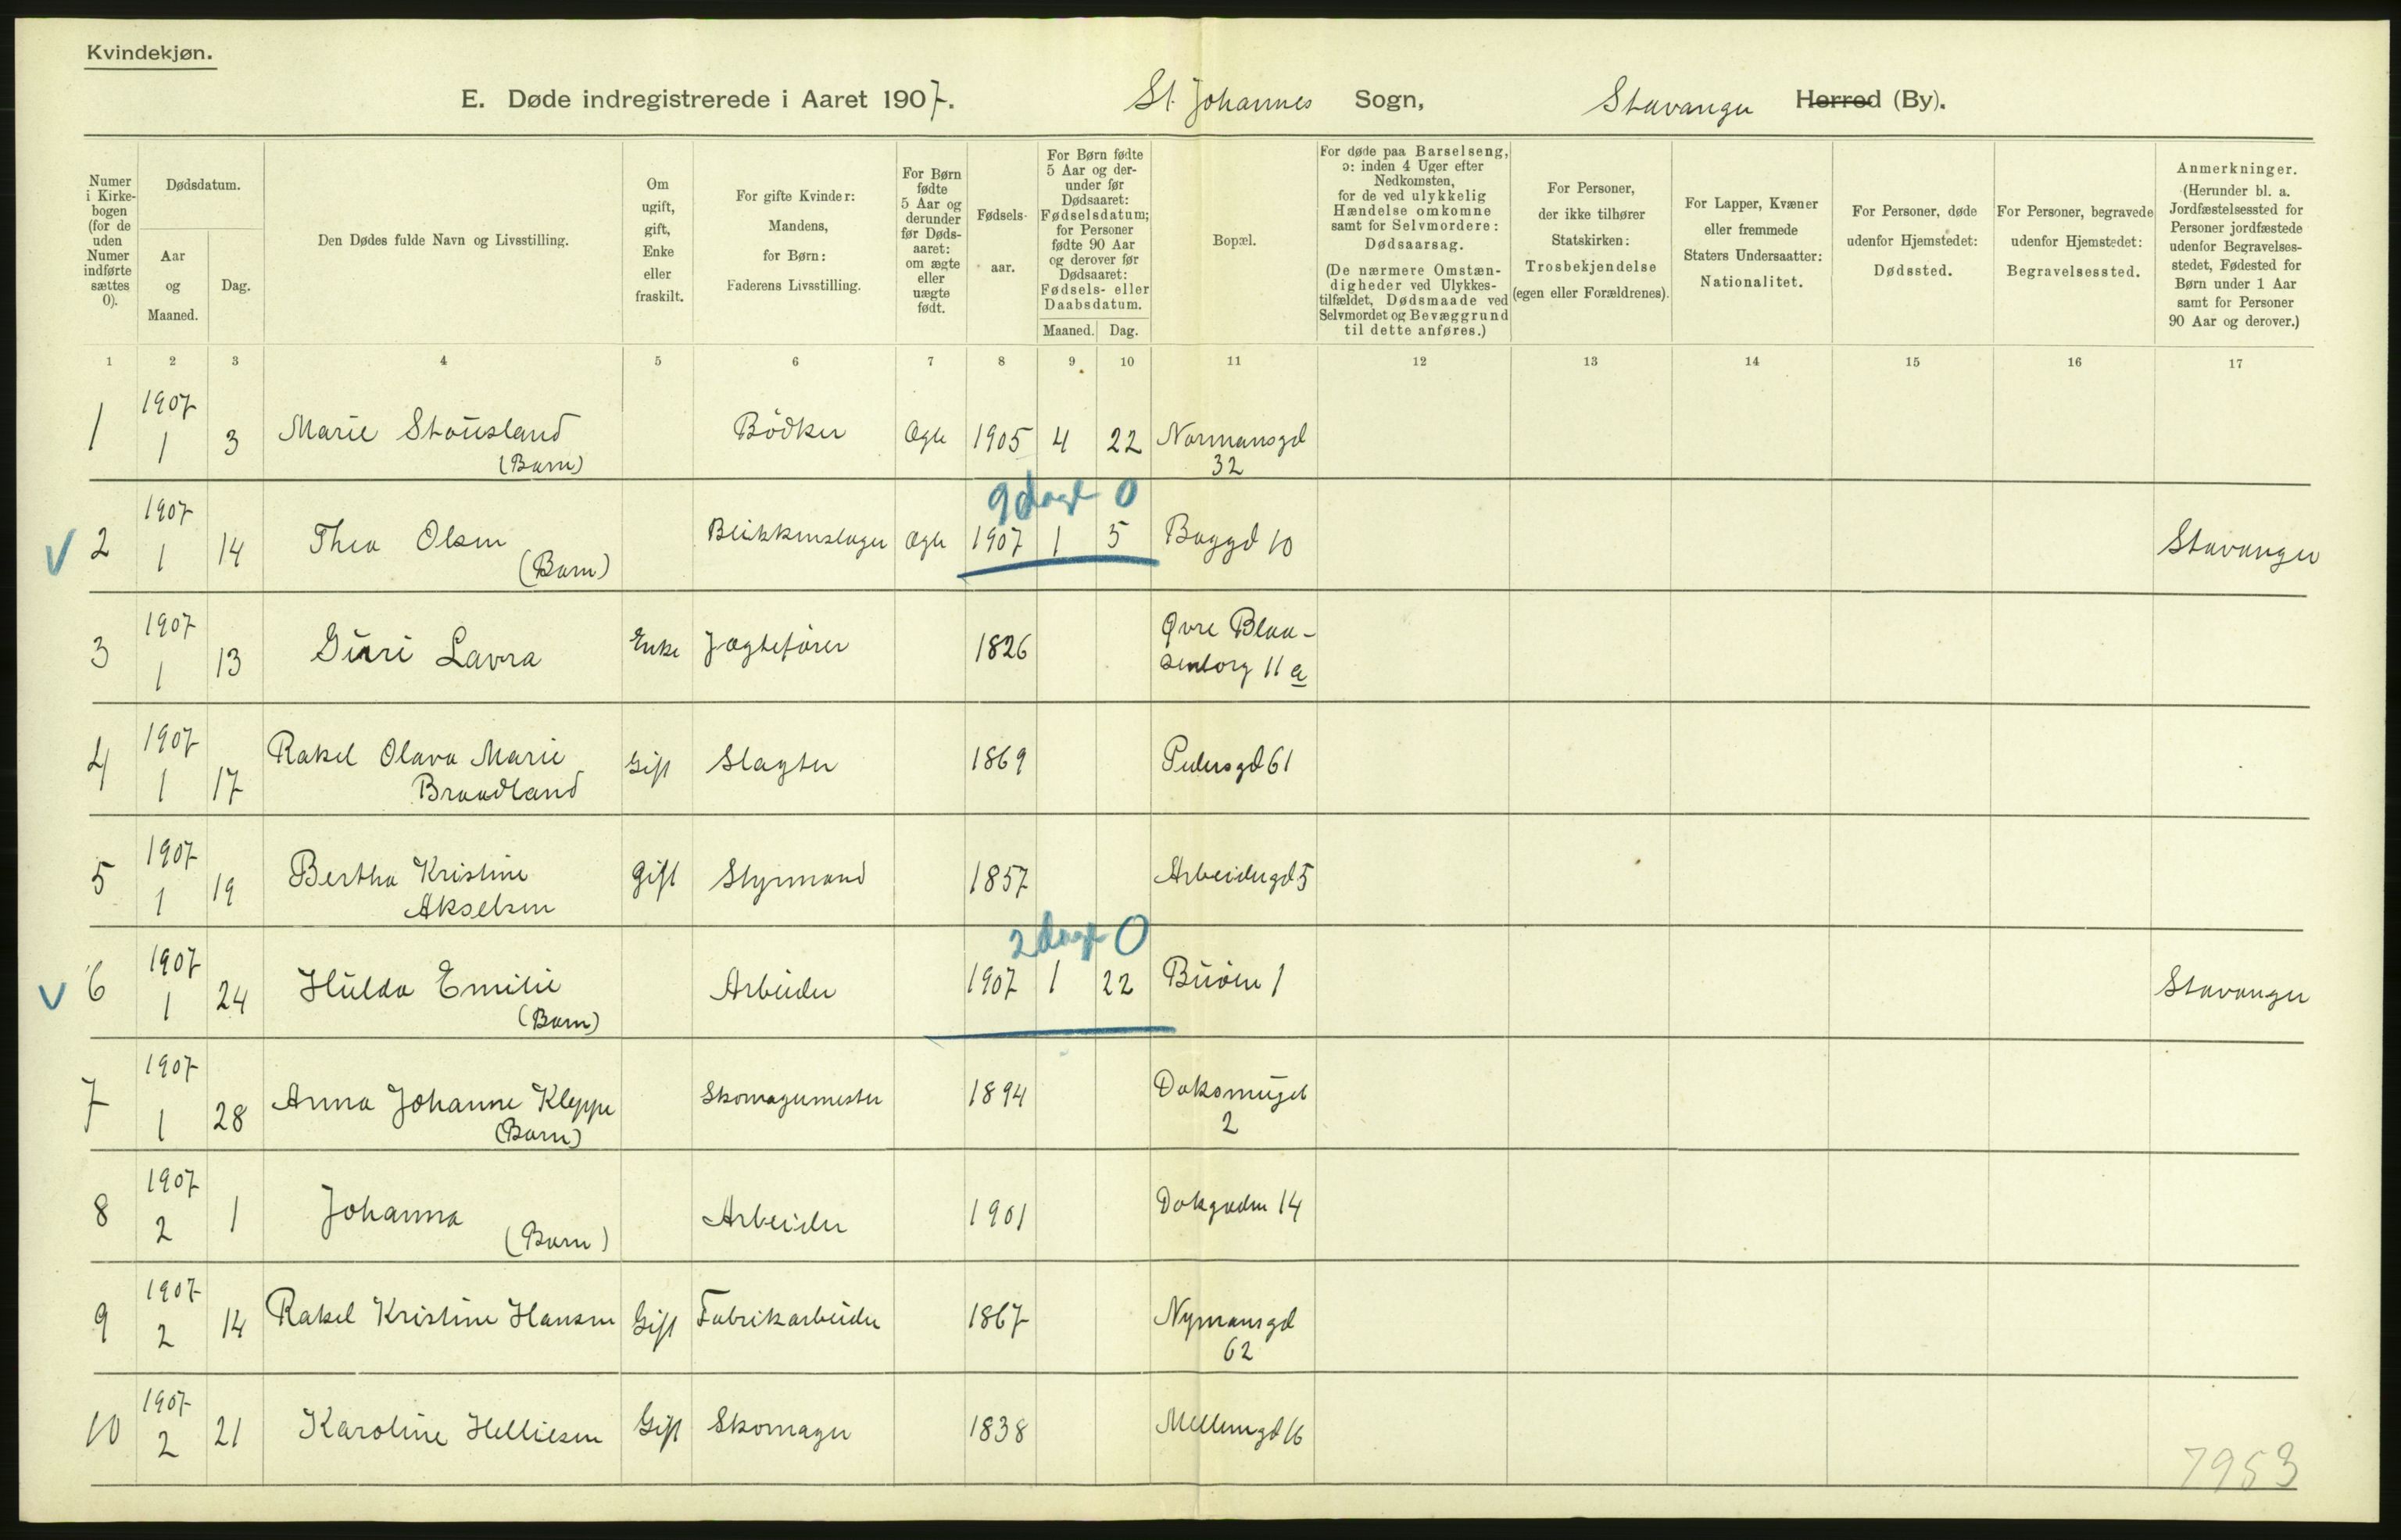 Kvindekjøn.
E. Døde indregistrerede i Aaret 1907. St. Johannes Sogn, Stavanger Herred (By).
Numer i Kirke-bogen (for de uden Numer indførte sættes 0).
Dødsdatum.
Aar og Maaned.
Dag.
Den Dødes fulde Navn og Livsstilling.
Om ugift, gift, Enke eller fraskilt.
For gifte Kvinder: Mandens, for Børn: Faderens Livsstilling.
For Børn fødte 5 Aar og derunder før Døds-aaret: om ægte eller uægte født.
Fødsels-aar.
For Børn fødte 5 Aar og der-under før Dødsaaret: Fødselsdatum; for Personer fødte 90 Aar og derover før Dødsaaret: Fødsels- eller Daabsdatum.
Maaned. Dag.
Bopæl.
For døde paa Barselseng, ɔ: inden 4 Uger efter Nedkomsten, for de ved ulykkelig Hændelse omkomne samt for Selvmordere: Dødsaarsag. (De nærmere Omstæn-digheder ved Ulykkes-tilfældet, Dødsmaade ved Selvmordet og Bevæggrund til dette anføres.)
For Personer, der ikke tilhører Statskirken: Trosbekjendelse (egen eller Forældrenes).
For Lapper, Kvæner eller fremmede Staters Undersaatter: Nationalitet.
For Personer, døde udenfor Hjemstedet: Dødssted.
For Personer, begravede udenfor Hjemstedet: Begravelsessted.
Anmerkninger. (Herunder bl. a. Jordfæstelsessted for Personer jordfæstede udenfor Begravelses-stedet, Fødested for Børn under 1 Aar samt for Personer 90 Aar og derover.)
1 2 3 4 5 6 7 8 9 10 11 12 13 14 15 16 17
1 1907 1 3 Marie Stousland (Barn) Bødker Ægte 1905 4 22 Normansgd 32
9 dage 0
V 2 1907 1 14 Thea Olsen (Barn) Blikkenslager Ægte 1907 1 5 Baggd 10 Stavanger
3 1907 1 13 Guri Lavra Enke Jagtefører 1826 Øvre Blaa-senborg 11 a
4 1907 1 17 Rakel Olava Marie Braadland Gift Slagter 1869 Pedersgd 61
5 1907 1 19 Bertha Kristine Akselsen Gift Styrmand 1857 Arbeidergd 5
2 dage 0
V 6 1907 1 24 Hulda Emilie (Barn) Arbeider 1907 1 22 Buøen 1 Stavanger
7 1907 1 28 Anna Johanne Kleppe (Barn) Skomagermester 1894 2
8 1907 2 1 Johanna (Barn) Arbeider 1901 Dokgaden 14
9 1907 2 14 Rakel Kristine Hansen Gift Fabrikarbeider 1867 Nymansgd 62
10 1907 2 21 Karoline Helliesen Gift Skomager 1838 Mellemgd 16
7953